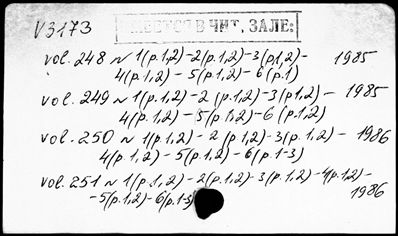 V3173
ИМЕЕТСЯ В ЧИТ. ЗАЛЕ:
vol. 248 N 1(p.1,2)-2(p.1,2)-3(p.1,2)- 1985
4(p.1,2)-5(p.1,2)-6(p.1)
vol. 249 N 1(p.1,2)-2(p.1,2)-3(p.1,2)- 1985
4(p.1,2)-5(p.1,2)-6(p.1,2)
vol. 250 N 1(p.1,2)-2(p.1,2)-3(p.1,2)- 1986
4(p.1,2)-5(p.1,2)-6(p.1-3)
vol. 251 N 1(p.1,2)-2(p.1,2)-3(p.1,2)-4(p.1,2)-
-5(p.1,2)-6(p.1-3) 1986